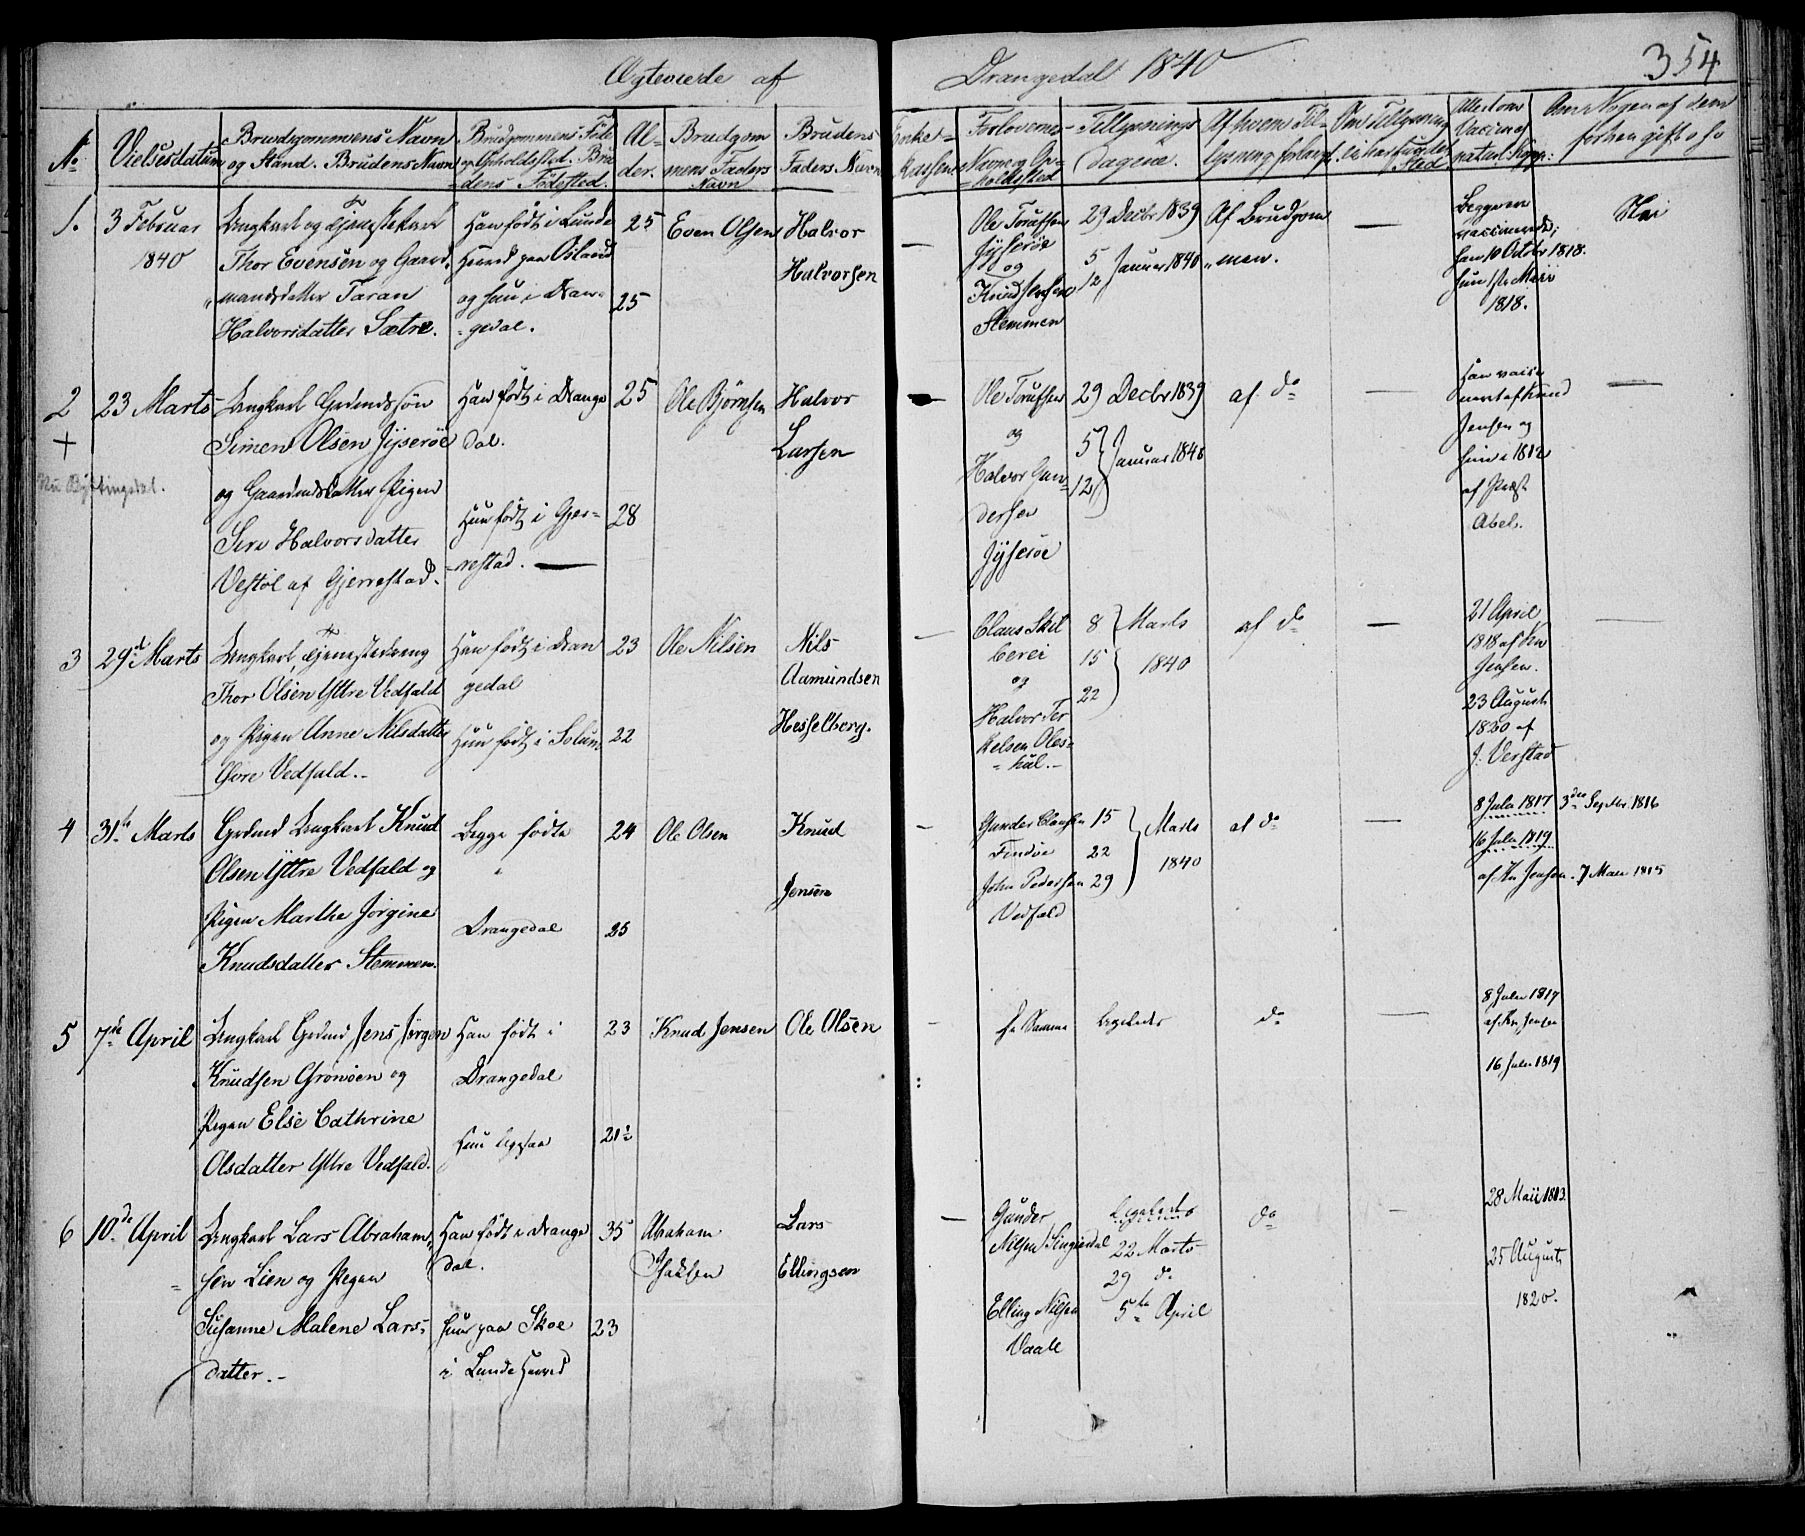 Ægteviede af Drangedal 1840
354
No
Vielsesdatum
Brudgommens Navn og Stand. Brudens Navn
Brudgommens Føde og Opholdssted. Brudens Fødested.
Alder.
Brudgommens Faders Navn
Brudens Faders Navn
Enkekassen
Forlovernes Navn og Opholdssted
Tillysnings Dagene.
Af hvem Tillysning forlangt
Om Tillysning ei har funden Sted
Attest om Vaccine og naturl. Kopp:
Om Nogen af dem forhen gift o.s.v
1.
3 Februar
1840
Ungkarl og Tjenestekarl
Thor Evensen og Gaard
mandsdatter Taran
Halvorsdatter Sætre.
Han født i Lunde
Herred paa Østand
og hun i Dran-
gedal.
25
25
Even Olsen
Halvor
Halvorsen
—
Ole Torufsen
Jyserøe
og
Knud Jensen
Stemmen
29 Decbr 1839
5
12 Januar 1840
Af Brudgom
men.
—
Begge ere
vaccinerede;
han 10 Octbr 1818.
hun
1818.
Nei
2
+
23 Marts
Ungkarl Grdmdssøn
Simen Olsen Jyserøe
og Gaardmdsdatter Pigen
Siri Halvorsdatter
Vestøl af Gjerrestad.
Han født i Drange
dal.
Hun født i Gjer-
restad. —
25
28
Ole Bjørnsen
Halvor
Larsen
Ole Torufsen
og
Halvor Gun-
dersen
Jyserøe
29 Decbr 1839
5
12 Januar 1840
af do
—
Han
af Knud
Jensen og
hun i 1812
af Præst
Abel.
—
3
29de Marts
Ungkarl Tjenestedreng
Thor Olsen Yttre Vedfald
og Pigen Anne Nilsdatter
Øvre Vedfald.-
Han født i Dran
gedal
Hun født i Solum
23
22
Ole Nilsen
Nils
Aamundsen
Hesselberg.
—
Claus Skil
berei
og
Halvor Ter
kelsen Oles-
hul.-
8
15
22
Marts
1840
af do
—
21 April
1818 af Kn
Jensen.
23 Augusti
1820 af
J. Verstad
—
4
31te Marts
Grdmd Ungkarl Knud
Olsen Yttre Vedfald og
Pigen Marthe Jørgine
Knudsdatter Stemmen.
Begge fødte
i
Drangedal
24
25
Ole Olsen
Knud
Jensen
-
Gunder Clausen
Findøe
John Pedersen
Vedfald
15
22
29
Marts
1840
af do
—
8 Julii 1817 3die Septbr. 1816
16 Julii 1819
af Kn Jensen. 7 Maii 1815
5
7de April
Ungkarl Grdmd Jens Jørgen
Knudsen Grønøen og
Pigen Else Cathrine
Olsdatter Yttre Vedfald.
Han født i
Drangedal
Hun ligesaa
23
21½
Knud Jensen
Ole Olsen
-
De Samme
ligeledes
do
—
8 Julii 1817
af Kn Jensen
16 Julii 1819
6
10de April
Ungkarl Lars Abraham
sen Lien og Pigen
Susanne Malene Lars-
datter.-
Han født i Drange
dal.
Hun paa Skoe
i Lunde Herred
35
23
Abraham
Isaksen
Lars
Ellingsen
—
Gunder
Nilsen
Elling Nilsen
Vaale
22 Marts
29 do
5te April
do
-
28 Maii 1813.
25 Augusti
1820.